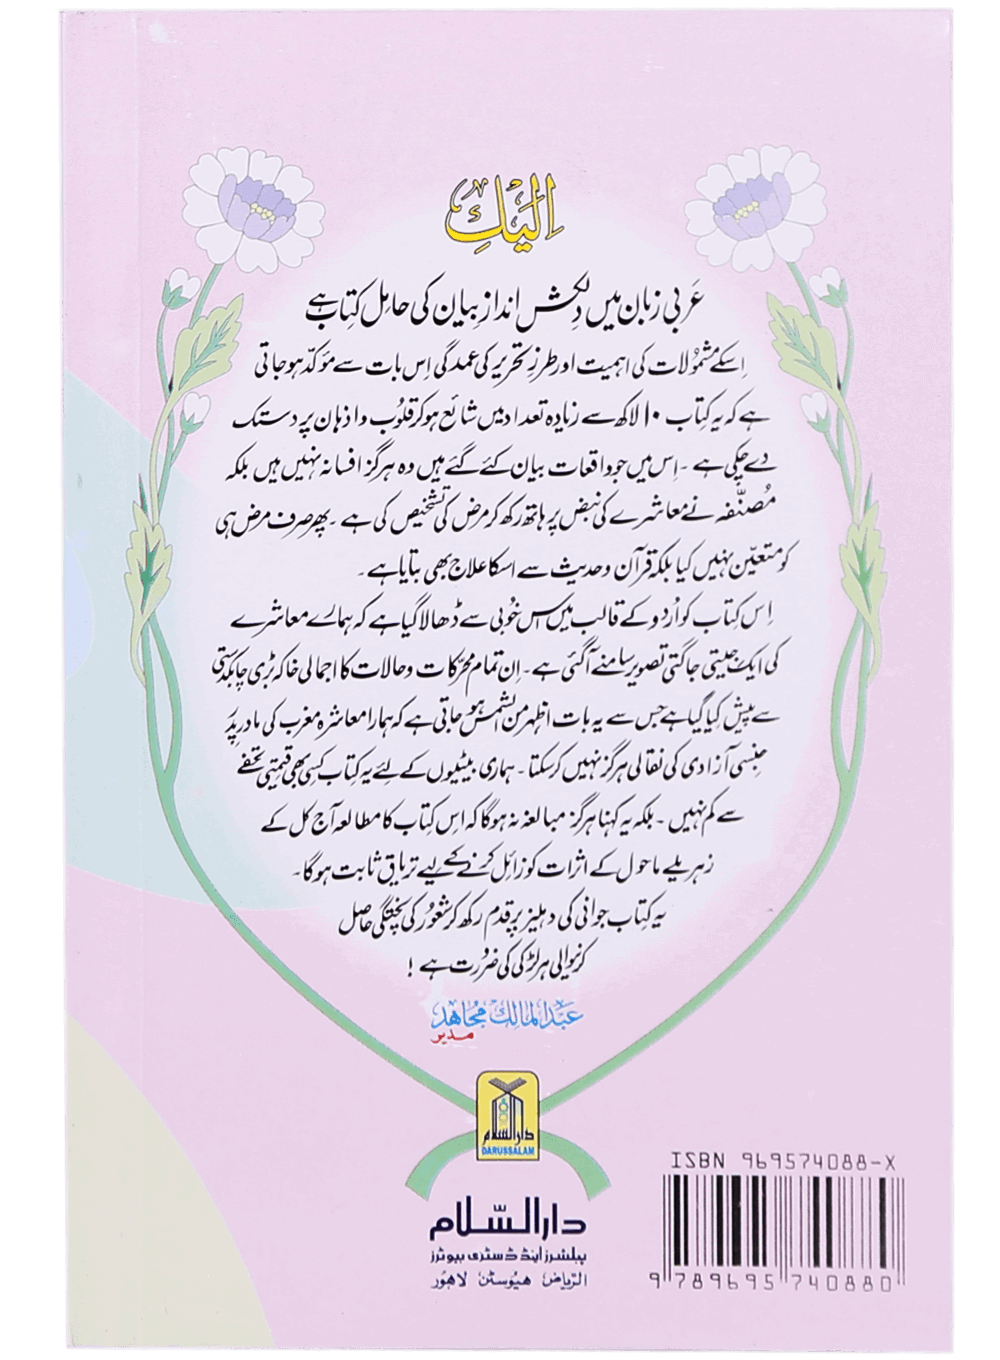 اِلَیكِ
عَربی زبان میں دِلکش اندازِ بیان کی حامل کتاب ہے
اِسکے مشمُولات کی اہمیت اور طرزِ تحریر کی عمدگی اِس بات سے مؤکّد ہو جاتی
ہے کہ یہ کتاب ۱۰ لاکھ سے زیادہ تعداد میں شائع ہو کر قلوُب و اذہان پر دستک
دے چکی ہے ۔ اِس میں جو واقعات بیان کئے گئے ہیں وہ ہرگز افسانہ نہیں ہیں بلکہ
مُصنّفہ نے معاشرے کی نبض پر ہاتھ رکھ کر مرض کی تشخیص کی ہے ۔ پھر صرف مرض ہی
کو متعیّن نہیں کیا بلکہ قرآن و حدیث سے اسکا علاج بھی بتایا ہے ۔
اِس کتاب کو اُردو کے قالب میں اس خُوبی سے ڈھالا گیا ہے کہ ہمارے معاشرے
کی ایک جیتی جاگتی تصویر سامنے آگئی ہے ۔ اِن تمام محرّکات و حالات کا اجمالی خاکہ بڑی چابکدستی
سے پیش کیا گیا ہے جس سے یہ بات اظہر من الشمس ہو جاتی ہے کہ ہمارا معاشرہ مغرب کی مادر پِدر
جنسی آزادی کی نقالی ہرگز نہیں کر سکتا ۔ ہماری بیٹیوں کے لئے یہ کتاب کسی بھی قیمتی تحفے
سے کم نہیں ۔ بلکہ یہ کہنا ہرگز مبالغہ نہ ہوگا کہ اس کتاب کا مطالعہ آج کل کے
زہریلے ماحول کے اثرات کو زائل کرنے کے لیے تریاق ثابت ہوگا ۔
یہ کتاب جوانی کی دہلیز پر قدم رکھ کر شعوُر کی پختگی حاصل
کرنیوالی ہر لڑکی کی ضرُورت ہے !
عبدالمالک مجاھد
مدیر
دارالسلام
DARUSSALAM
ISBN 969574088-X
دارالسّلام
پبلشرز اینڈ ڈسٹری بیوٹرز
الریاض ھیوسٹن لاھور
9 789695 740880